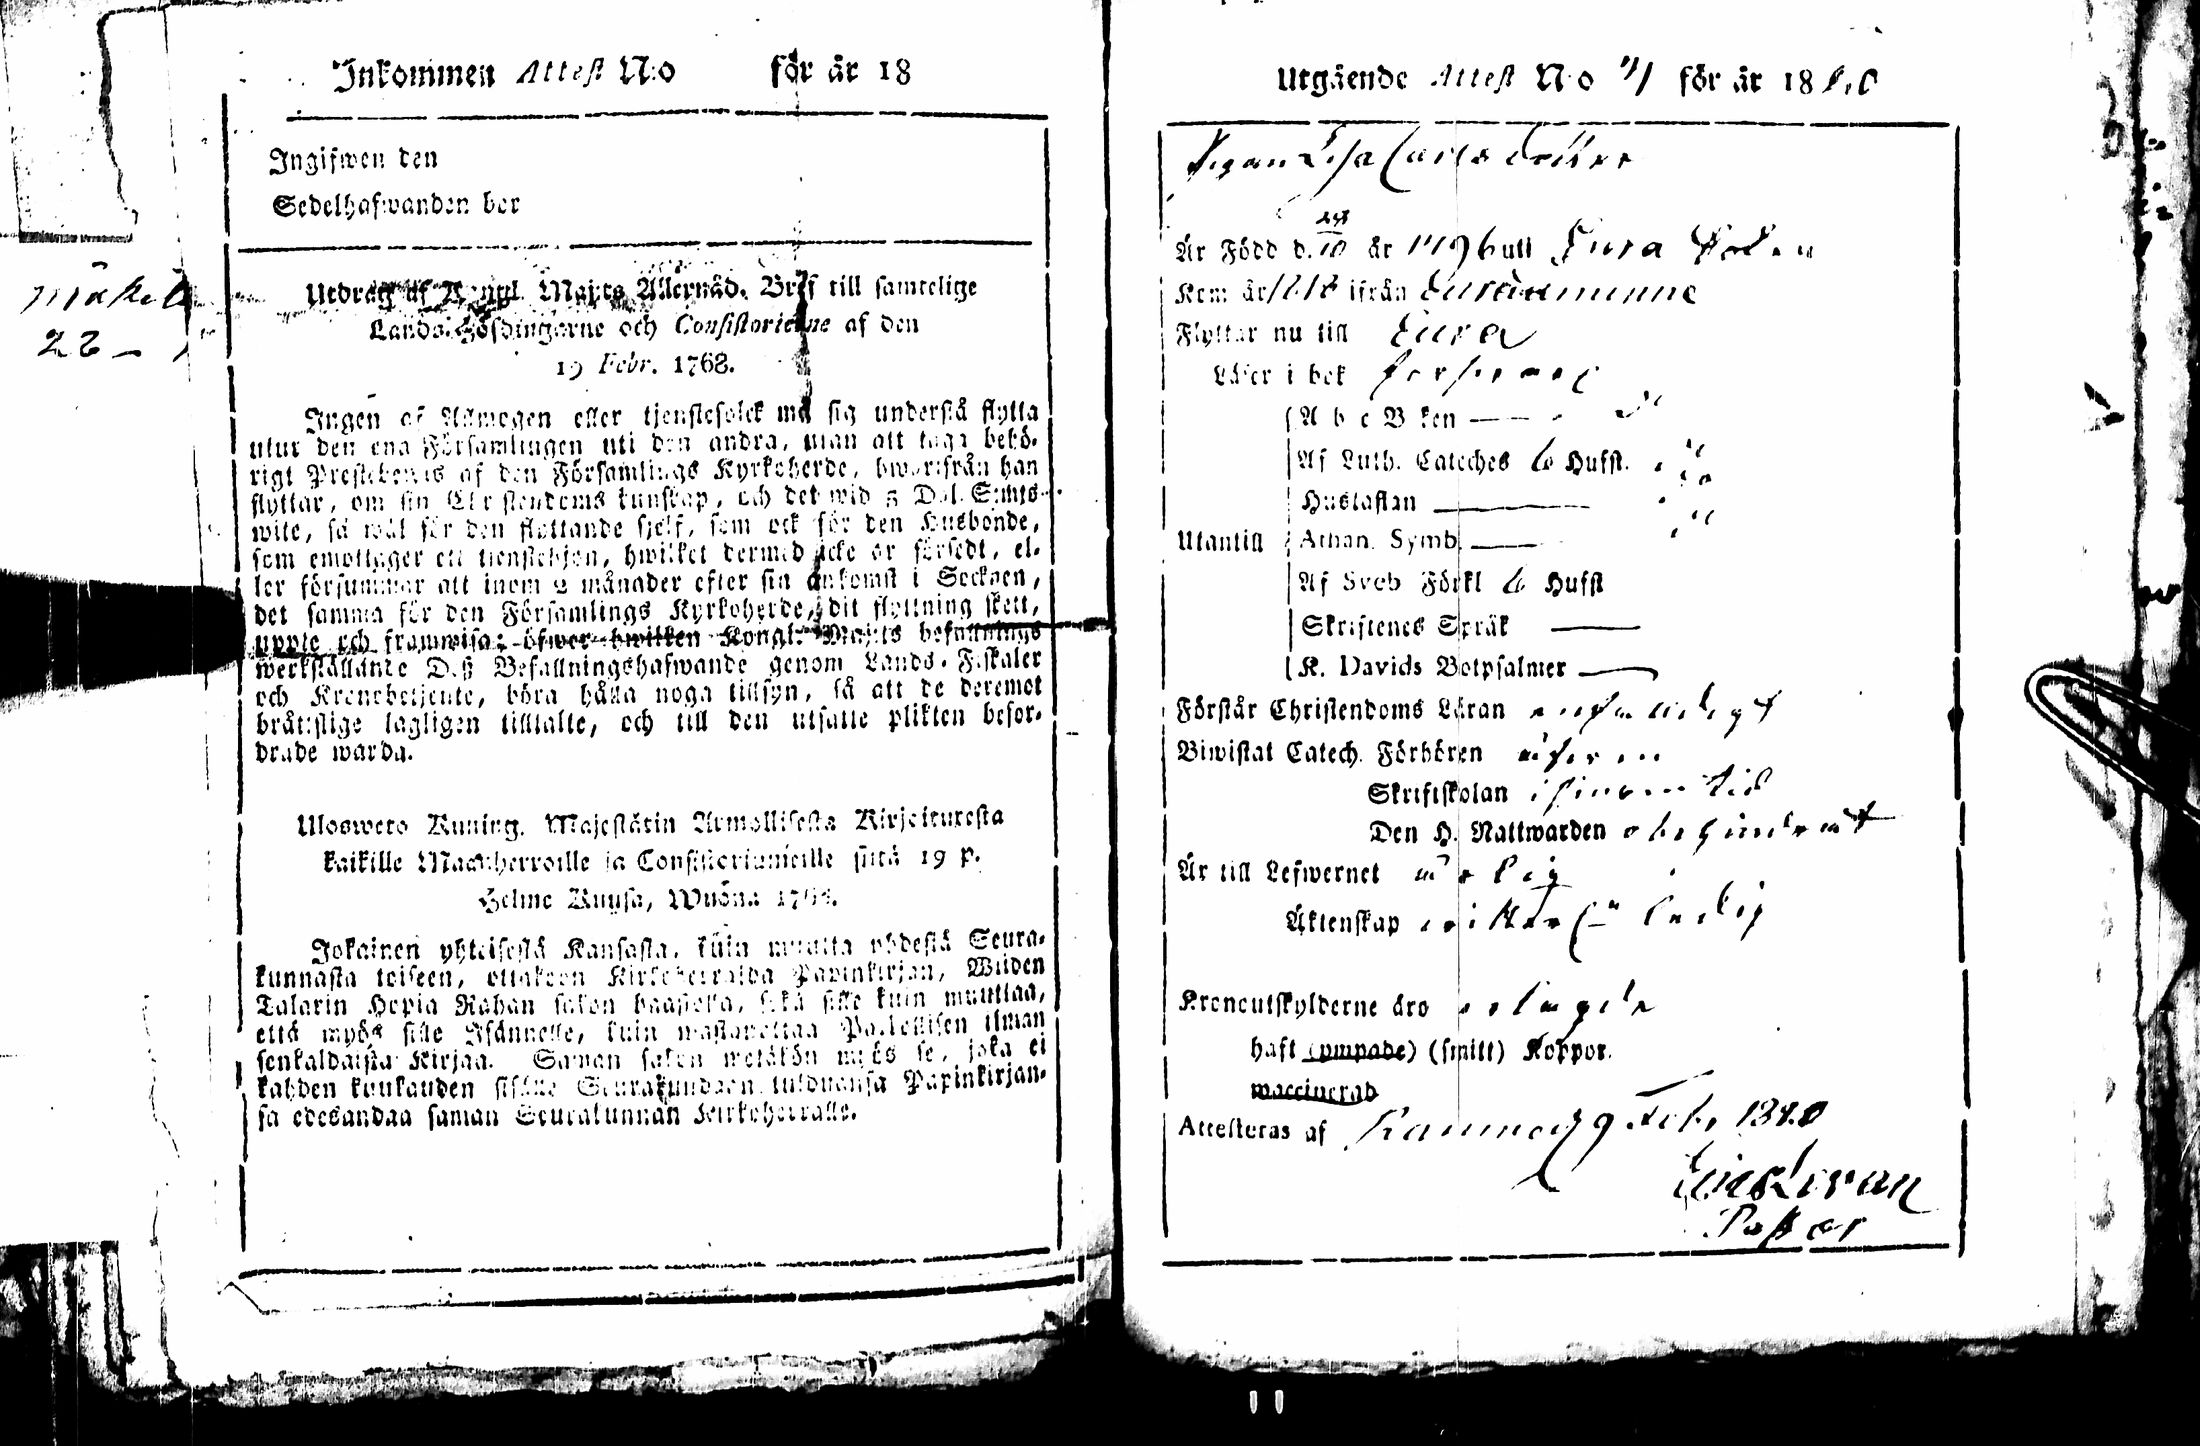 Inkommen Attest N:o för är 18
Ingifwen den
Sedelhafwanden bor
Utdrag af Kongl. Maj:ts Allernåd. Bref till samtelige
Lands-Höfdingarne och Consistorierne af den
19 Febr. 1768.
Ingen af Allmogen eller tjenstefolck må sig understå flytta
utur den ena Församlingen uti den andra, utan att taga behö-
rigt Prestebewis af den Församlings Kyrkoherde, hwarifrån han
flyttar, om sin Christendoms kunskap, och det wid 5 Dal. S:mts
wite, så wäl för den flyttande sjelf, som ock för den Husbonde,
som emottager ett tienstehjon, hwilket dermed icke är försedt, el-
ler försummar att inom 2 månader efter sin ankomst i Socknen,
det samma för den Församlings Kyrkoherde, dit flyttning skett,
uppte och framwisa; öfwer hwilken Kongl. Maj:ts befallnings
werkställande Deß Befallningshafwande genom Lands-Fiskaler
och Kronobetjente, böra hålla noga tillsyn, så att de deremot
bråtslige lagligen tilltalte, och till den utsatte plikten befor-
drade warda.
Ulosweto Kuning. Majestätin Armollisesta Kirjoituxesta
kaikille Maanherroille ja Consistoriumeille siitä 19 p.
Helme Kuusa, Wuonna 1768.
Jokainen yhteisestä Kansasta, kuin muutta yhdestä Seura-
kunnasta toiseen, ottakoon Kirkoherralda Papinkirjan, Wiiden
Talarin Hopia Rahan sakon haastolla, sekä sille kuin muuttaa,
että myös sille Isännelle, kuin wastaanottaa Palkollisen ilman
senkaldaista Kirjaa. Saman sakon wetäkön myös se, joka ei
kahden kuukauden sisälle Seurakundaan tulduansa Papinkirjan-
sa edesandaa saman Seurakunnan Kirkoherralle.
Utgäende Attest N:o för är 1840
Är Född d. är 1796 uti Eura Soken
Kom är 1818 ifrån Euraåminne
Flyttar nu till Eura
Läser i bok
A b c Boken
Af Luth. Cateches Hufst.
Hustaflan
Utantill Athan. Symb.
Af Sveb Förkl Hufst
Skriftenes Språk
K. Davids Botpsalmer
Förstår Christendoms Läran
Biwistat Catech. Förhören
Skriftskolan i sinom tid
Den H. Nattwarden obehindrat
Är till Lefwernet
Äktenskap ledig
Kronoutskylderne äro
haft (ympade) (smitt) Koppor.
waccinerad
Attesteras af Raumo d 9 Feb. 1840
Pastor
22